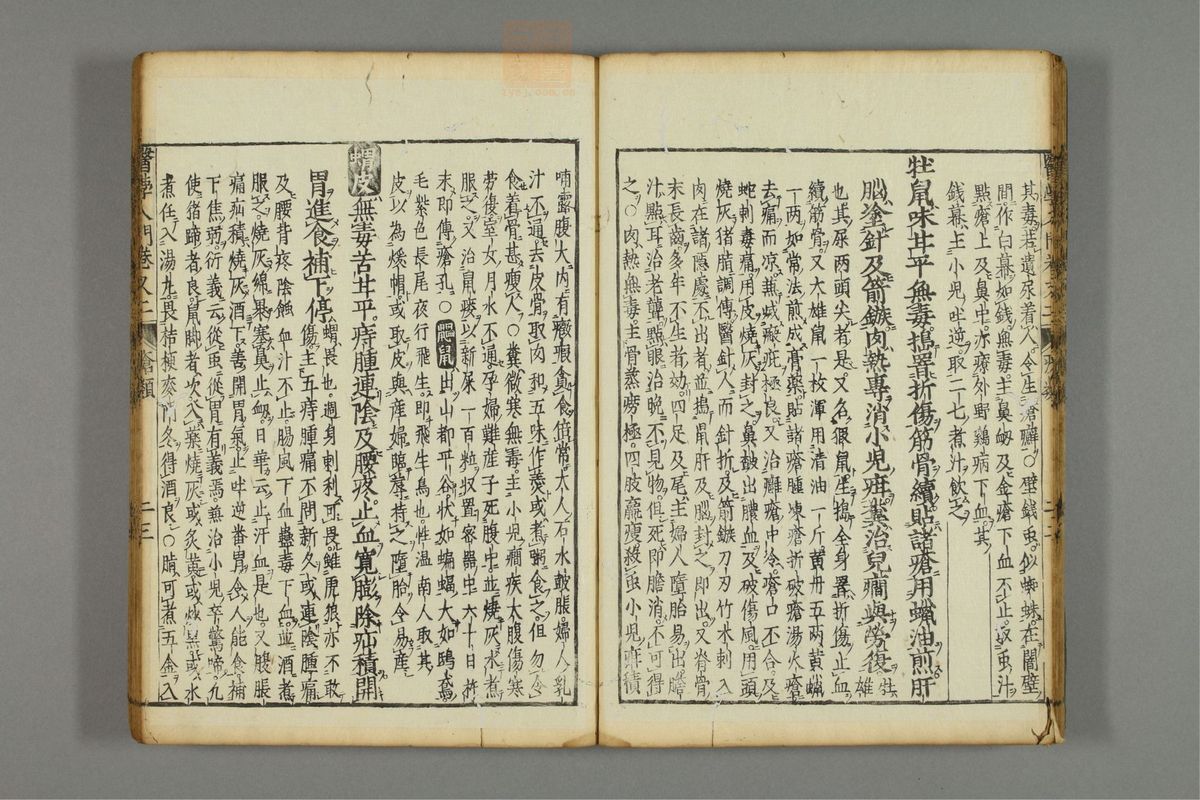 其毒若遺尿着人令生瘡癬○壁錢虫似蜘蛛在闇壁
間作白幕如錢無毒主鼻衄及金瘡下血不止取虫汁
點瘡上及鼻中亦療外野鷄病下血其
錢幕主小児吐逆取二七煮汁飲之
牡鼠味甘平無毒搗署折傷筋骨續貼諸瘡用蠟油煎肝
腦塗針及箭鏃肉熱專消小児疳兼治兒癎與勞復牡雄
也其屎兩頭尖者是又名䶉鼠生搗全身署折傷止血
續筋骨又大雄鼠一枚渾用清油一斤黄丹五兩黄蠟
一兩如常法煎成膏藥貼諸瘡腫凍瘡折破瘡湯火瘡
去痛而凉滅瘢疵極良又治癰瘡中冷瘡口不合及
蛇刺毒痛用皮燒灰封之鼻皶出膿血及破傷風用頭
燒灰猪脂調傅醫針人而針折及箭鏃刀刃竹木刺入
肉在諸隱處不出者並搗鼠肝及腦封之即出又脊骨
末長齒多年不生者効四足及尾主婦人墮胎易出膽
汁點耳治老聾點眼治晩不見物但死即膽消不可得
之○肉熱無毒主骨蒸癆極四肢羸瘦殺虫小児疳積
哺露腹大内有癥瘕貪食倍常大人石水皷脹婦人乳
汁不通去皮骨取肉和五味作羮或煮粥食之但勿令
食着骨甚瘦人○糞微寒無毒主小児癎疾大腹傷寒
勞復室女月水不通孕婦難産子死腹中並燒灰水煮
服之又治鼠瘻以新屎一百粒収置密器中六十日杵
末即傅瘡孔○鼺鼠出山都平谷狀如蝙蝠大如鴟鳶
毛紫色長尾夜行飛生即飛生鳥也性温南人取其
皮以為煖帽或取皮與産婦臨蓐持之墮胎令易産
蝟皮無毒苦甘平痔腫連陰及腰疼止血寛膨除疝積開
胃進食補下停蝟畏也週身刺利可畏雖虎狼亦不敢
傷主五痔腫痛不問新久或連陰腫痛
及腰背疼陰蝕血汁不止腸風下血蠱毒下血並酒煮
服之燒灰綿裹塞鼻止衂日華云止汗血是也又腹脹
痛疝積燒灰酒下善開胃氣止吐逆番胃令人能食補
下焦弱衍義云從虫從胃有義焉兼治小児卒驚啼九
使猪蹄者良鼠脚者次入藥燒灰或炙黄或炒黒或水
煮任入湯丸畏桔梗麥門冬得酒良○脂可煮五金入
醫學入門卷之二 瘡類 二三